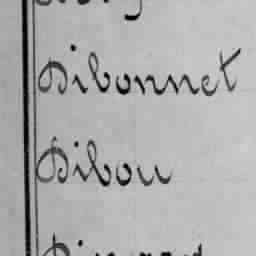 Dibonnet
Dibou